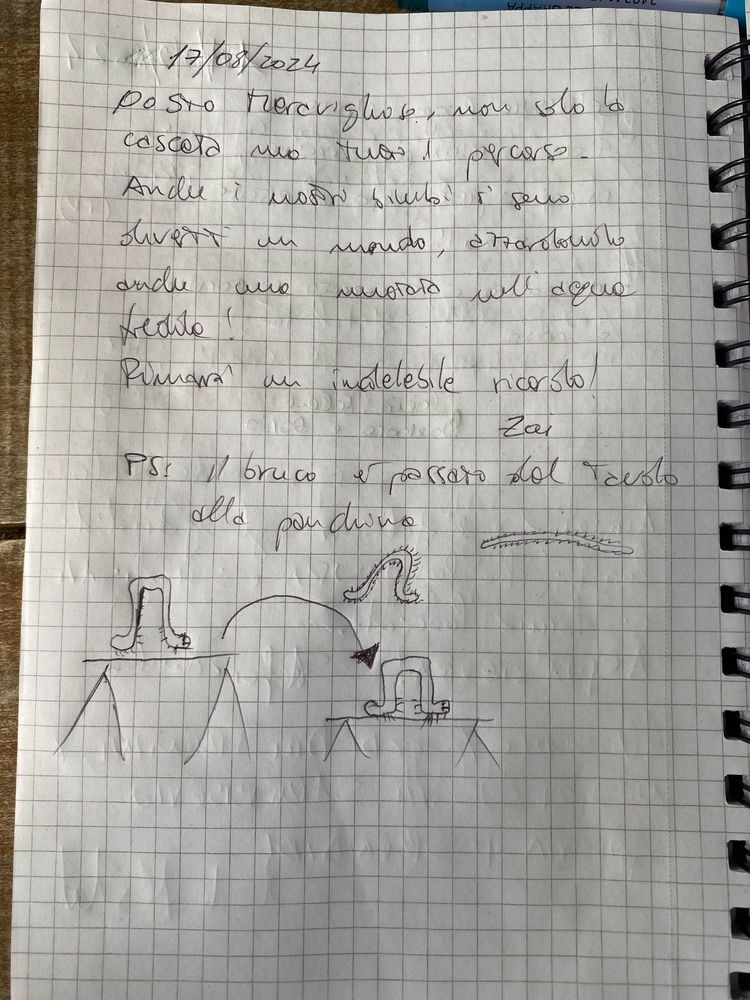 17/08/2024
Posto meraviglioso, non solo la
cascata ma tutto il percorso.
Anche i nostri bimbi si sono
divertiti un mondo, azzardando
anche una nuotata nell'acqua
fredda!
Rimarrà un indelebile ricordo!
Zai
PS: il bruco è passato dal tavolo
alla panchina